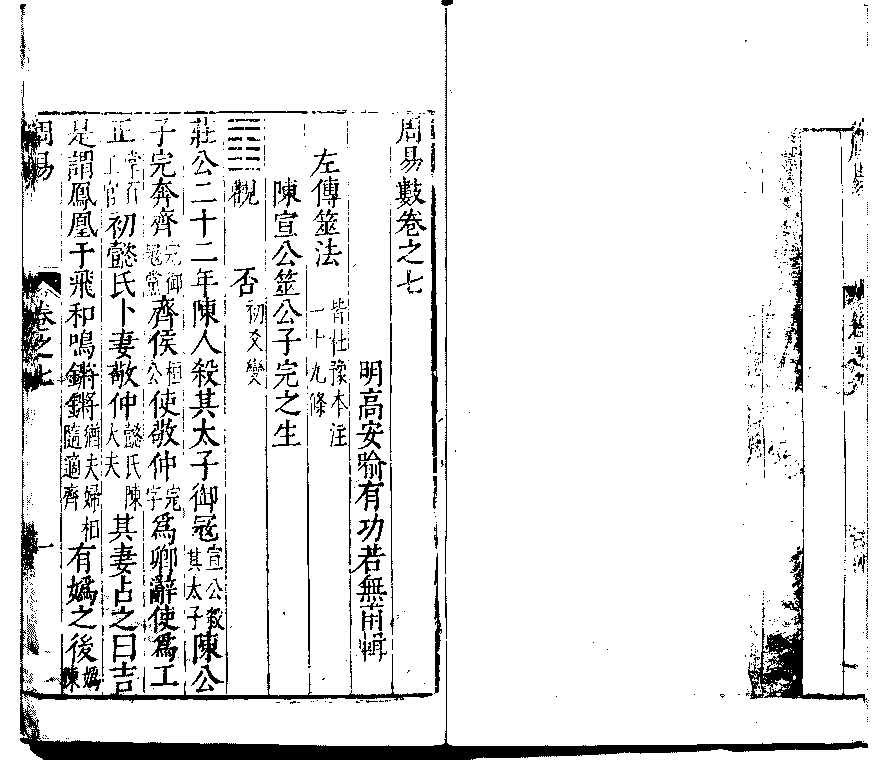 周易數卷之七
明高安喻有功若無甫輯
左傳筮法 皆杜豫本注一十九條
陳宣公筮公子完之生
觀 否 初爻變
莊公二十二年陳人殺其太子御冦 宣公殺其太子 陳公
子完奔齊 完御冦黨 齊侯 桓公 使敬仲 完字 為卿辭使為工
正 掌百工官 初懿氏卜妻敬仲 懿氏陳大夫 其妻占之曰吉
是謂鳳凰于飛和鳴鏘鏘 將猶夫婦相隨適齊 有嬀之後 嬀陳
周易 卷之七 一